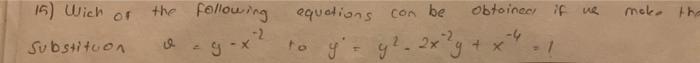 15) Wich of the following equations can be obtained if we make the
Substituon v = y - x⁻² to y' = y² - 2x⁻²y + x⁻⁴ = 1